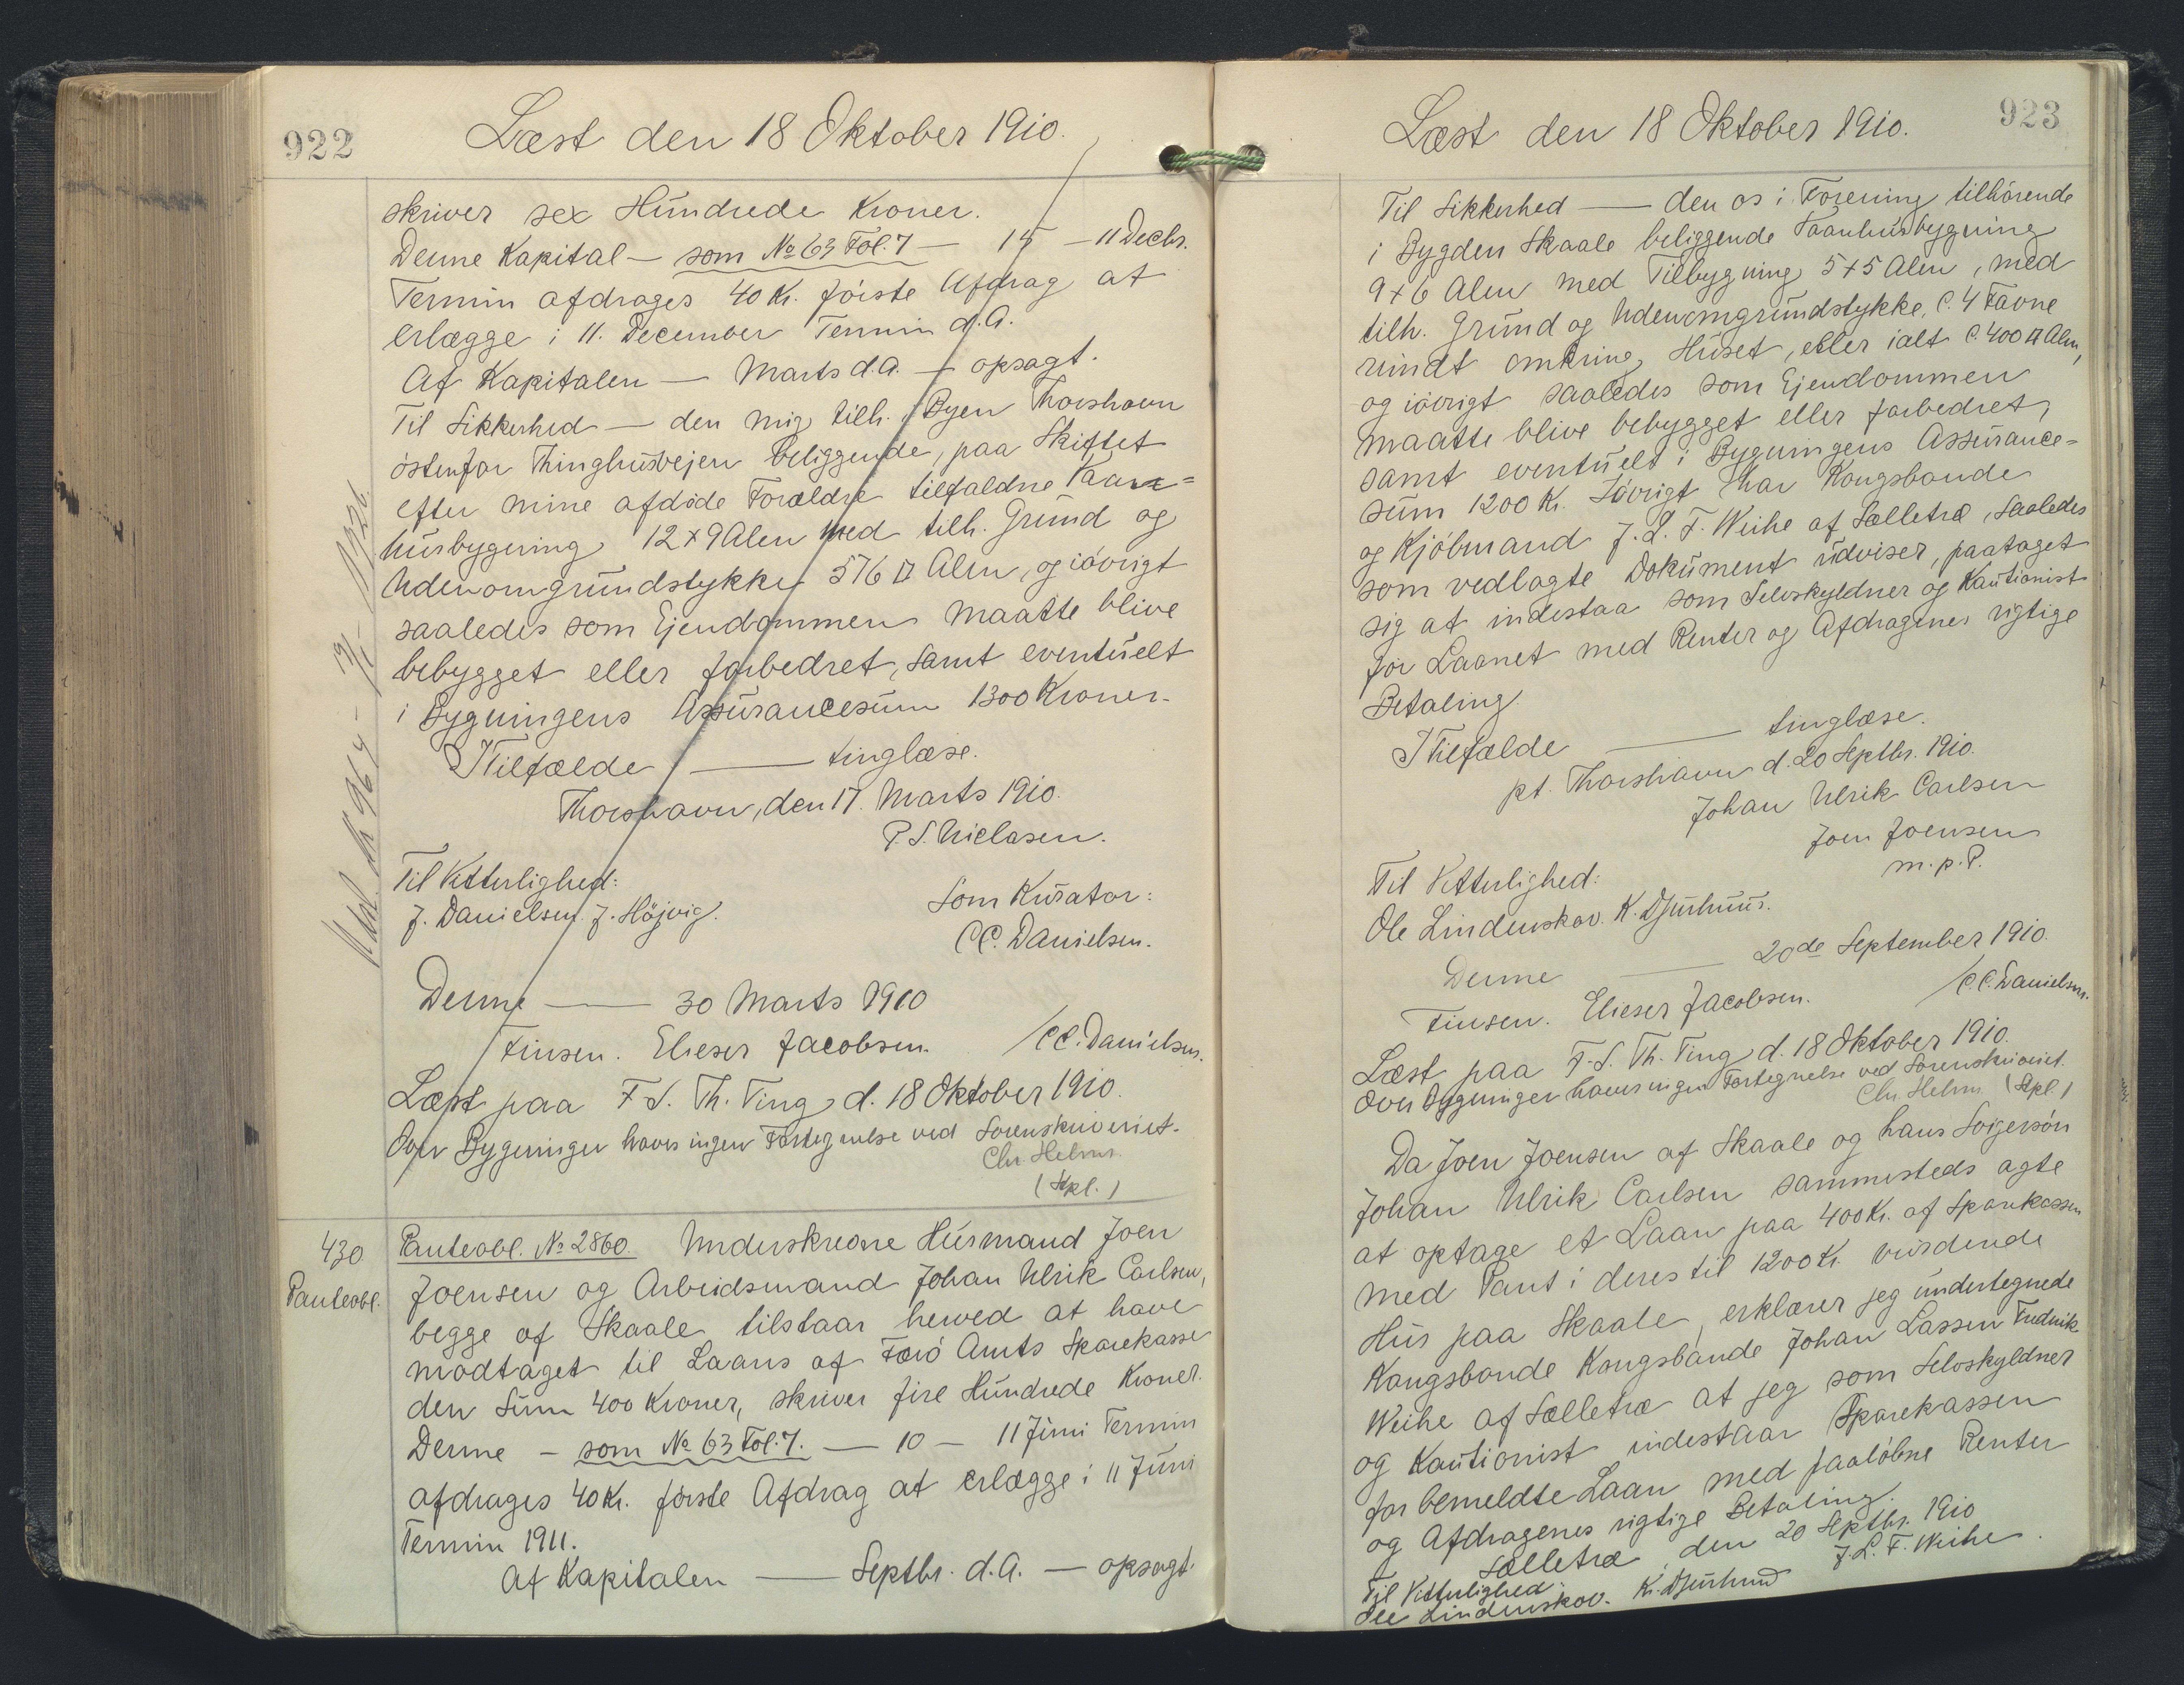 922
Læst den 18 Oktober 1910.
skriver sex Hundrede Kroner.
Denne Kapital — som № 63 Fol. 7 — 15 — 11 Decbr.
Termin afdrages 40 Kr. første Afdrag at
erlægge i 11. December Termin d.A.
Af Kapitalen — Marts d.A. — opsagt.
Til Sikkerhed — den mig tilh. i Byen Thorshavn
østenfor Thinghusvejen beliggende, paa Skiftet
efter mine afdøde Forældre tilfaldne Vaan=
husbygning 12 x 9 Alen med tilh. Grund og
Udenomgrundstykke 576 □ Alen, og iøvrigt
saaledes som Ejendommen maatte blive
bebygget eller forbedret, samt eventuelt
i Bygningens Assurancesum 1300 Kroner.
I Tilfælde — tinglæse.
Thorshavn, den 17. Marts 1910.
P.S. Niclasen.
Til Vitterlighed:
J. Danielsen. J. Höjvig.
Som Kurator:
C.C. Danielsen.
Denne — 30 Marts 1910
Finsen. Elieser Jacobsen. /C.C. Danielsen.
Læst paa F. S. Th. Ting d. 18 Oktober 1910.
Over Bygninger haves ingen Fortegnelse ved Sorenskriveriet.
Chr. Helms.
(Spl.)
430
Panteobl.
Panteobl. № 2860. Underskrevne Husmand Joen
Joensen og Arbeidsmand Johan Ulrik Carlsen,
begge af Skaale tilstaar herved at have
modtaget til Laans af Færø Amts Sparekasse
den Sum 400 Kroner, skriver fire Hundrede Kroner.
Denne — som № 63 Fol. 7. — 10 — 11 Juni Termin
afdrages 40 Kr. første Afdrag at erlægge i 11 Juni
Termin 1911.
Af Kapitalen — Septbr. d.A. — opsagt.
923
Læst den 18 Oktober 1910.
Til Sikkerhed — den os i Forening tilhørende
i Bygden Skaale beliggende Vaanhusbygning
9 x 6 Alen med Tilbygning 5 x 5 Alen, med
tilh. Grund og Udenomgrundstykke, C. 4 Favne
rundt omkring Huset, eller ialt C. 400 □ Alen,
og iøvrigt saaledes som Ejendommen
maatte blive bebygget eller forbedret,
samt eventuelt i Bygningens Assurance=
sum 1200 Kr. Iøvrigt har Kongsbonde
og Kjøbmand J. L. F. Weihe af Selletræ, saaledes
som vedlagte Dokument udviser, paataget
sig at indestaa som Selvskyldner og Kautionist
for Laanet med Renter og Afdragenes rigtige
Betaling.
I Tilfælde — tinglæse.
pt. Thorshavn d. 20 Septbr. 1910.
Johan Ulrik Carlsen
Joen Joensen
m. p. P.
Til Vitterlighed:
Ole Lindenskov. K. Djurhuus.
Denne — 20de September 1910.
Finsen. Elieser Jacobsen. /C.C. Danielsen.
Læst paa F. S. Th. Ting d. 18 Oktober 1910.
Over Bygninger haves ingen Fortegnelse ved Sorenskriveriet.
Chr. Helms. (Spl.)
Da Joen Joensen af Skaale og hans Svigersøn
Johan Ulrik Carlsen sammesteds agte
at optage et Laan paa 400 Kr. af Sparekassen
med Pant i deres til 1200 Kr. vurderede
Hus paa Skaale, erklærer jeg undertegnede
Kongsbonde Kongsbonde Johan Lassen Fredrik
Weihe af Selletræ at jeg som Selvskyldner
og Kautionist indestaar Sparekassen
for bemeldte Laan med paaløbne Renter
og Afdragenes rigtige Betaling.
Selletræ, den 20 Septbr. 1910
J. L. F. Weihe.
Til Vitterlighed:
Ole Lindenskov. K. Djurhuus